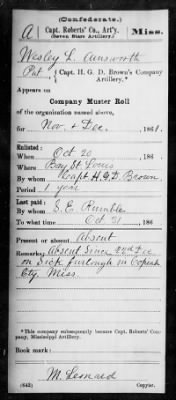 (Confederate.)
A | Capt. Roberts' Co., Art'y. | Miss.
(Seven Stars Artillery.)
Wesley L. Ainsworth
Pvt, Capt. H. G. D. Brown's Company
Artillery.*
Appears on
Company Muster Roll
of the organization named above,
for Nov. & Dec., 1861.
Enlisted:
When Oct 20, 186
Where Bay St. Louis
By whom Capt H.G.D. Brown
Period 1 year
Last paid:
By whom S. E. Rumble
To what time Oct 31, 186
Present or absent Absent
Remarks: Absent Since 22nd Dec
on Sick furlough in Copiah
Cty Miss.
*This company subsequently became Capt. Roberts' Company, Mississippi Artillery.
Book mark:
M. Leonard
(642) Copyist.